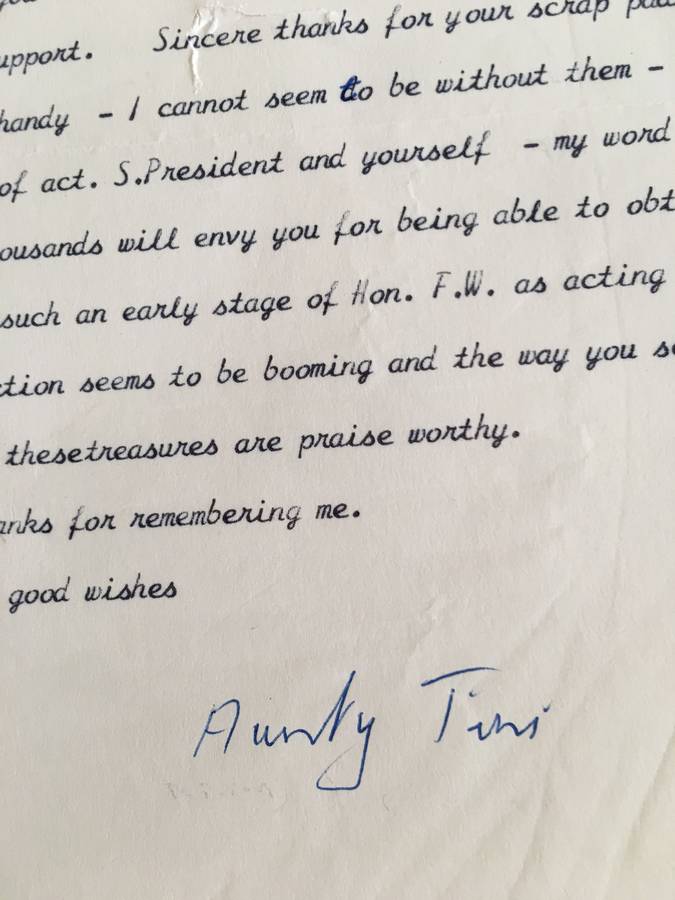 upport. Sincere thanks for your scrap pad
handy - I cannot seem to be without them -
of act. S.President and yourself - my word
ousands will envy you for being able to obt
such an early stage of Hon. F.W. as acting
ction seems to be booming and the way you s
thesetreasures are praise worthy.
anks for remembering me.
good wishes
Aunty Tini